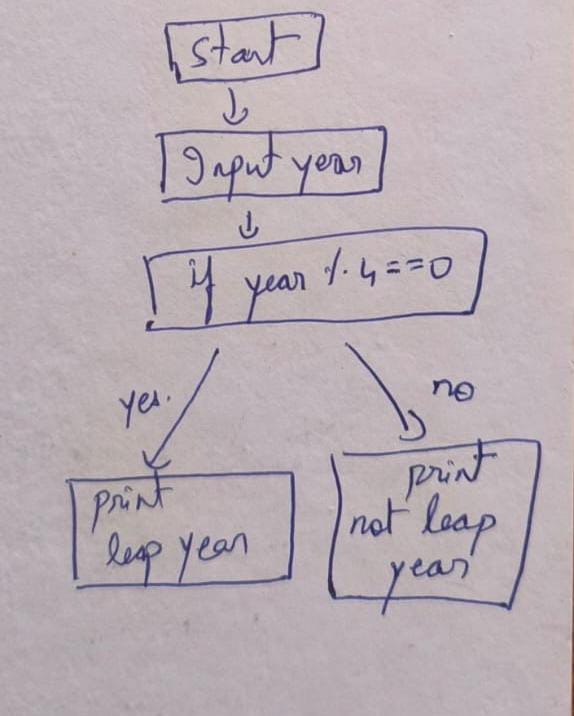 Start
Input year
if year % 4 == 0
yes.
no
print
leap year
print
not leap
year